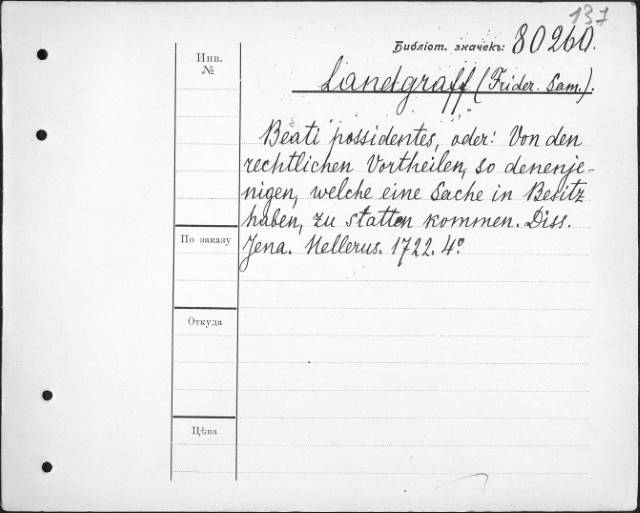 137
Библіот. значекъ: 80260.
Инв.
№
Landgraff (Frider. Sam.).
Beati possidentes, oder: Von den
rechtlichen Vortheilen, so denenje-
nigen, welche eine Sache in Besitz
haben, zu statten kommen. Diss.
Jena. Mellerus. 1722. 4°
По заказу
Откуда
Цѣна